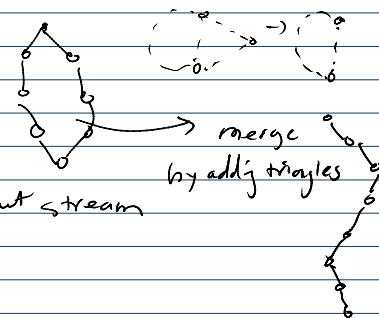 merge
by add'g triangles
ut stream